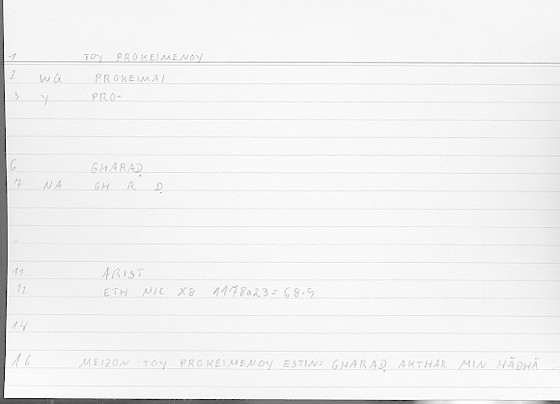 1 TOY PROKEIMENOY
2 WG PROKEIMAI
3 Y PRO-
6 GHARAḌ
7 NA GH R Ḍ
11 ARIST
12 ETH NIC X8 1178a23 = 68.9
14
16 MEIZON TOY PROKEIMENOY ESTIN: GHARAḌ AKTHAR MIN HĀDHĀ